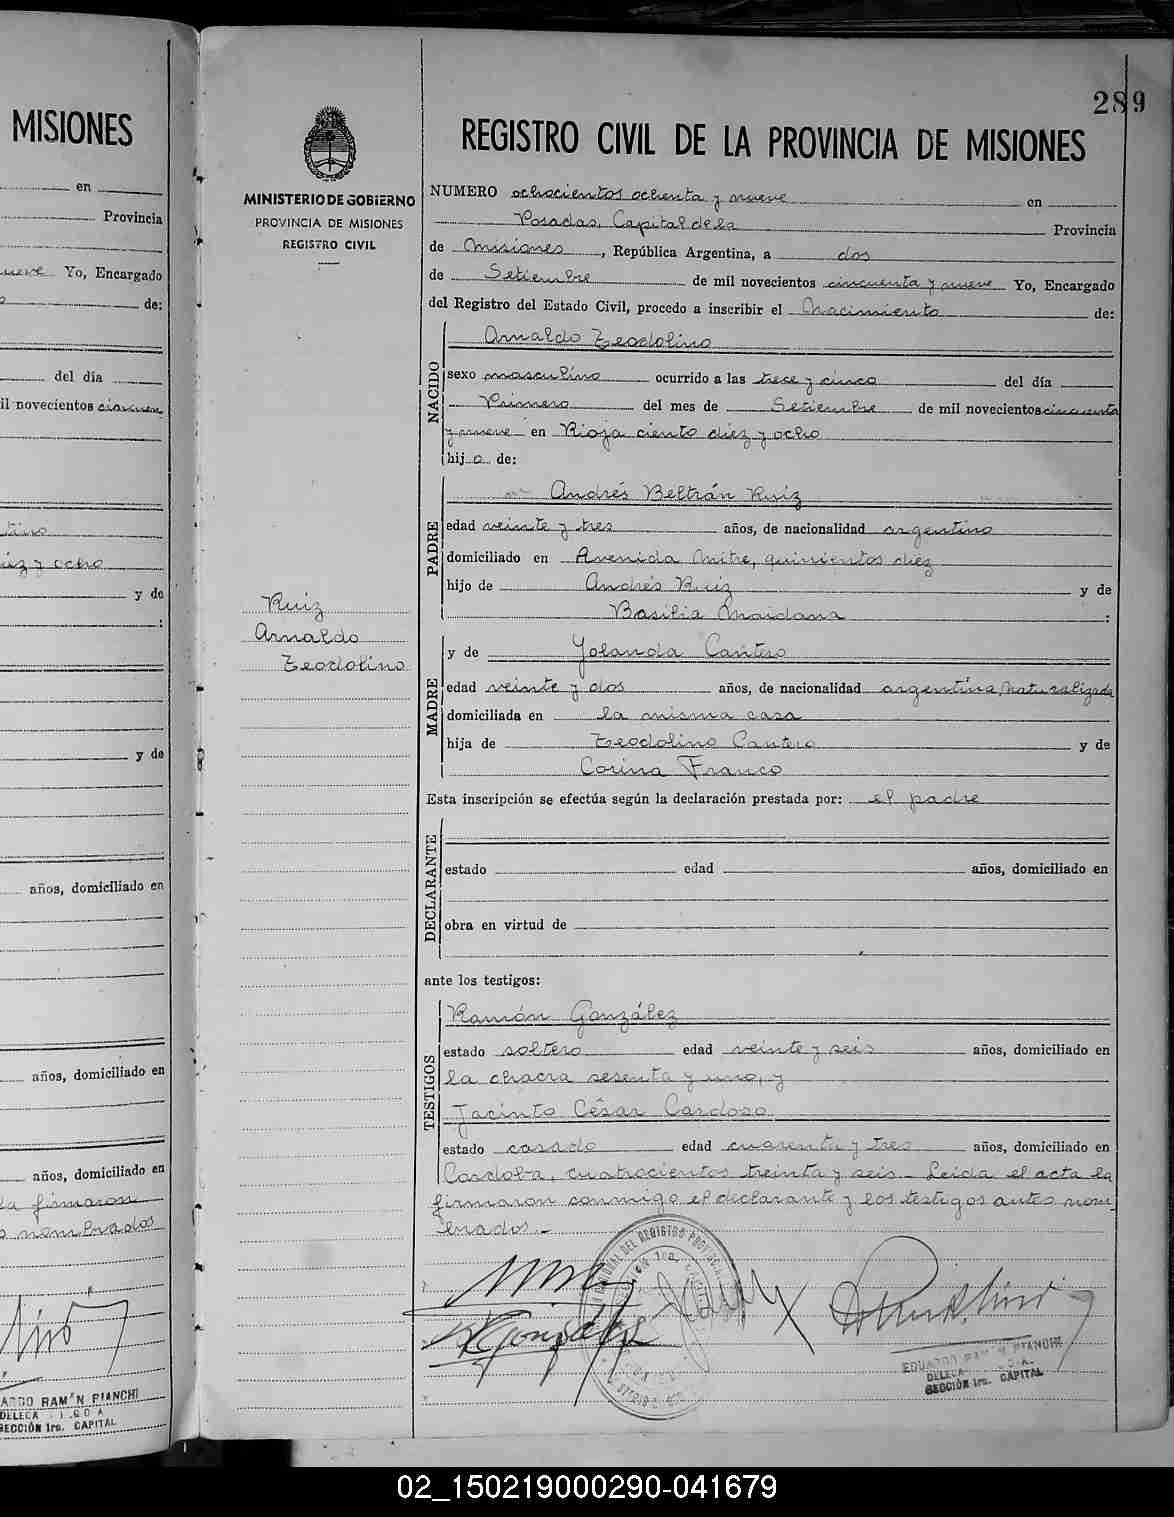 MISIONES
en
Provincia
nueve Yo, Encargado
de:
del día
il novecientos cincuen
y de
:
y de
años, domiciliado en
años, domiciliado en
años, domiciliado en
la firmaron
nombrados
RAMÓN BIANCHI
SECCIÓN 1ra. CAPITAL
289
MINISTERIO DE GOBIERNO
PROVINCIA DE MISIONES
REGISTRO CIVIL
Ruiz
Arnaldo
Teodolino
REGISTRO CIVIL DE LA PROVINCIA DE MISIONES
NUMERO ochocientos ochenta y nueve en
Posadas, Capital de la Provincia
de Misiones, República Argentina, a dos
de Setiembre de mil novecientos cincuenta y nueve Yo, Encargado
del Registro del Estado Civil, procedo a inscribir el Nacimiento de:
NACIDO
Arnaldo Teodolino
sexo masculino ocurrido a las trece y cinco del día
Primero del mes de Setiembre de mil novecientos cincuenta
y nueve en Rioja ciento diez y ocho
hijo de:
PADRE
Andrés Beltrán Ruiz
edad veinte y tres años, de nacionalidad argentino
domiciliado en Avenida Mitre, quinientos diez
hijo de Andrés Ruiz y de
Basilia Maidana :
MADRE
y de Yolanda Cantero
edad veinte y dos años, de nacionalidad argentina, naturalizada
domiciliada en la misma casa
hija de Teodolino Cantero y de
Corina Franco
Esta inscripción se efectúa según la declaración prestada por: el padre
DECLARANTE
estado edad años, domiciliado en
obra en virtud de
ante los testigos:
TESTIGOS
Ramón González
estado soltero edad veinte y seis años, domiciliado en
la chacra sesenta y uno, y
Jacinto César Cardozo
estado casado edad cuarenta y tres años, domiciliado en
Cordoba, cuatrocientos treinta y seis.- Leida el acta la
firmaron conmigo el declarante y los testigos antes nom-
brados.-
R González
EDUARDO RAMÓN BIANCHI
SECCIÓN 1ra. CAPITAL
02_150219000290-041679